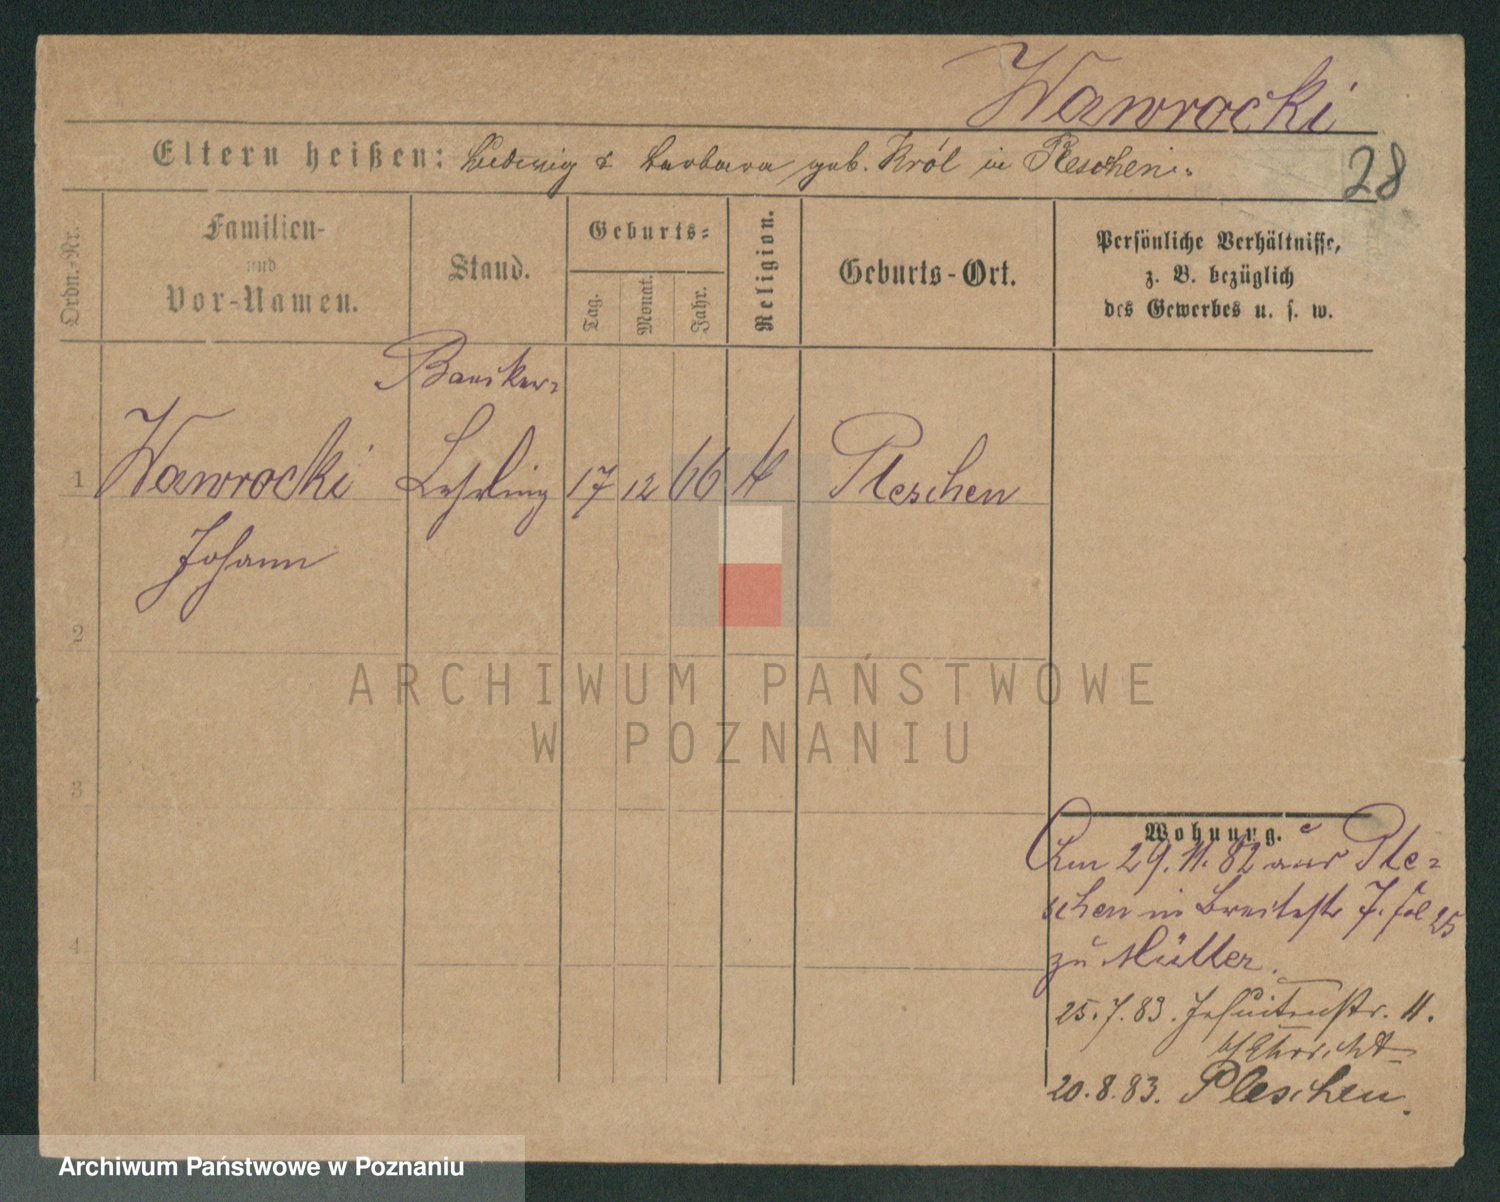 Wawrocki
Eltern heißen: Ludwig & Barbara geb. Król in Pleschen.
28
Ordn.-Nr.
Familien-
und
Vor-Namen.
Stand.
Geburts-
Tag.
Monat.
Jahr.
Religion.
Geburts-Ort.
Persönliche Verhältnisse,
z. B. bezüglich
des Gewerbes u. s. w.
1 Wawrocki Lehrling 17 12 66 K Pleschen
Johann
2
3
4
ARCHIWUM PAŃSTWOWE
W POZNANIU
Wohnung.
Am 29.11.82 aus Ple-
schen in Breitestr 7. fol 25
zu Müller.
25.7.83. Jesuitenstr. 11.
20.8.83. Pleschen.
Archiwum Państwowe w Poznaniu